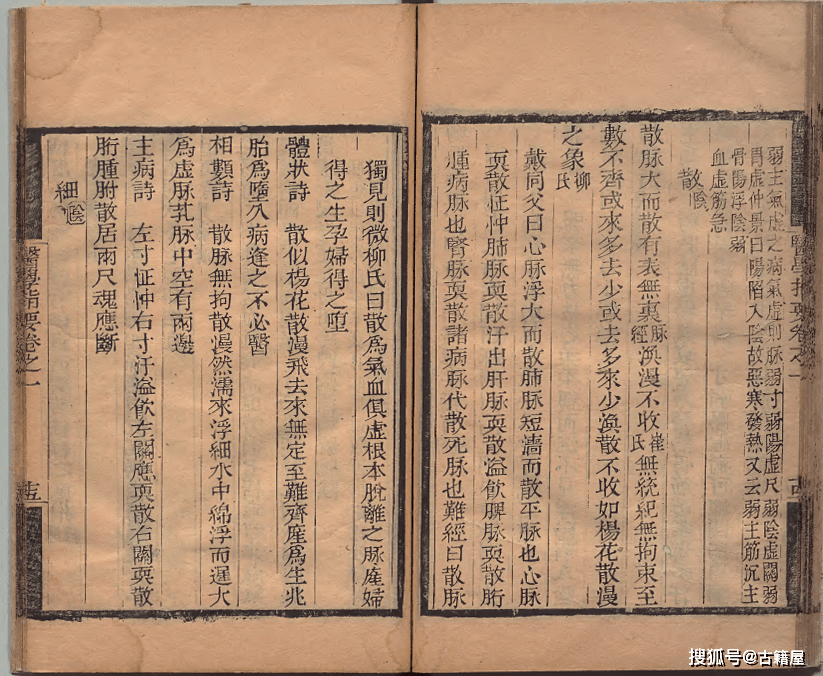 醫學指要卷之一
十四
弱主氣虛之病氣虛則脉弱寸弱陽虛尺弱陰虛關弱
胃虛仲景曰陽陷入陰故惡寒發熱又云弱主筋沉主
骨陽浮陰弱
血虛筋急
散陰
散脉大而散有表無裏脉經渙漫不收崔氏無統紀無拘束至
數不齊或來多去少或去多來少渙散不收如楊花散漫
之象柳氏
戴同父曰心脉浮大而散肺脉短濇而散平脉也心脉
耎散怔忡肺脉耎散汗出肝脉耎散溢飲脾脉耎散胻
腫病脉也腎脉耎散諸病脉代散死脉也難經曰散脉
獨見則微柳氏曰散爲氣血俱虛根本脫離之脉產婦
得之生孕婦得之墮
體狀詩 散似楊花散漫飛去來無定至難齊產爲生兆
胎爲墮久病逢之不必醫
相類詩 散脉無拘散漫然濡來浮細水中綿浮而遲大
爲虛脉芤脉中空有兩邊
主病詩 左寸怔忡右寸汗溢飲左關應耎散右關耎散
胻腫胕散居兩尺魂應斷
細陰
醫學指要卷之一
十五
搜狐号@古籍屋